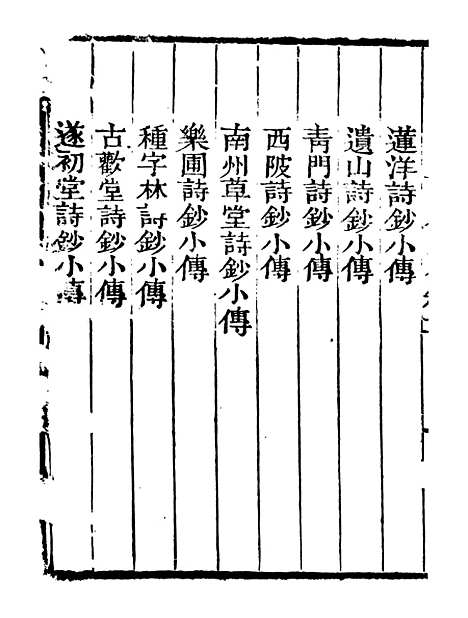 蓮洋詩鈔小傳
遺山詩鈔小傳
靑門詩鈔小傳
西陂詩鈔小傳
南州草堂詩鈔小傳
樂圃詩鈔小傳
種字林詩鈔小傳
古歡堂詩鈔小傳
遂初堂詩鈔小傳